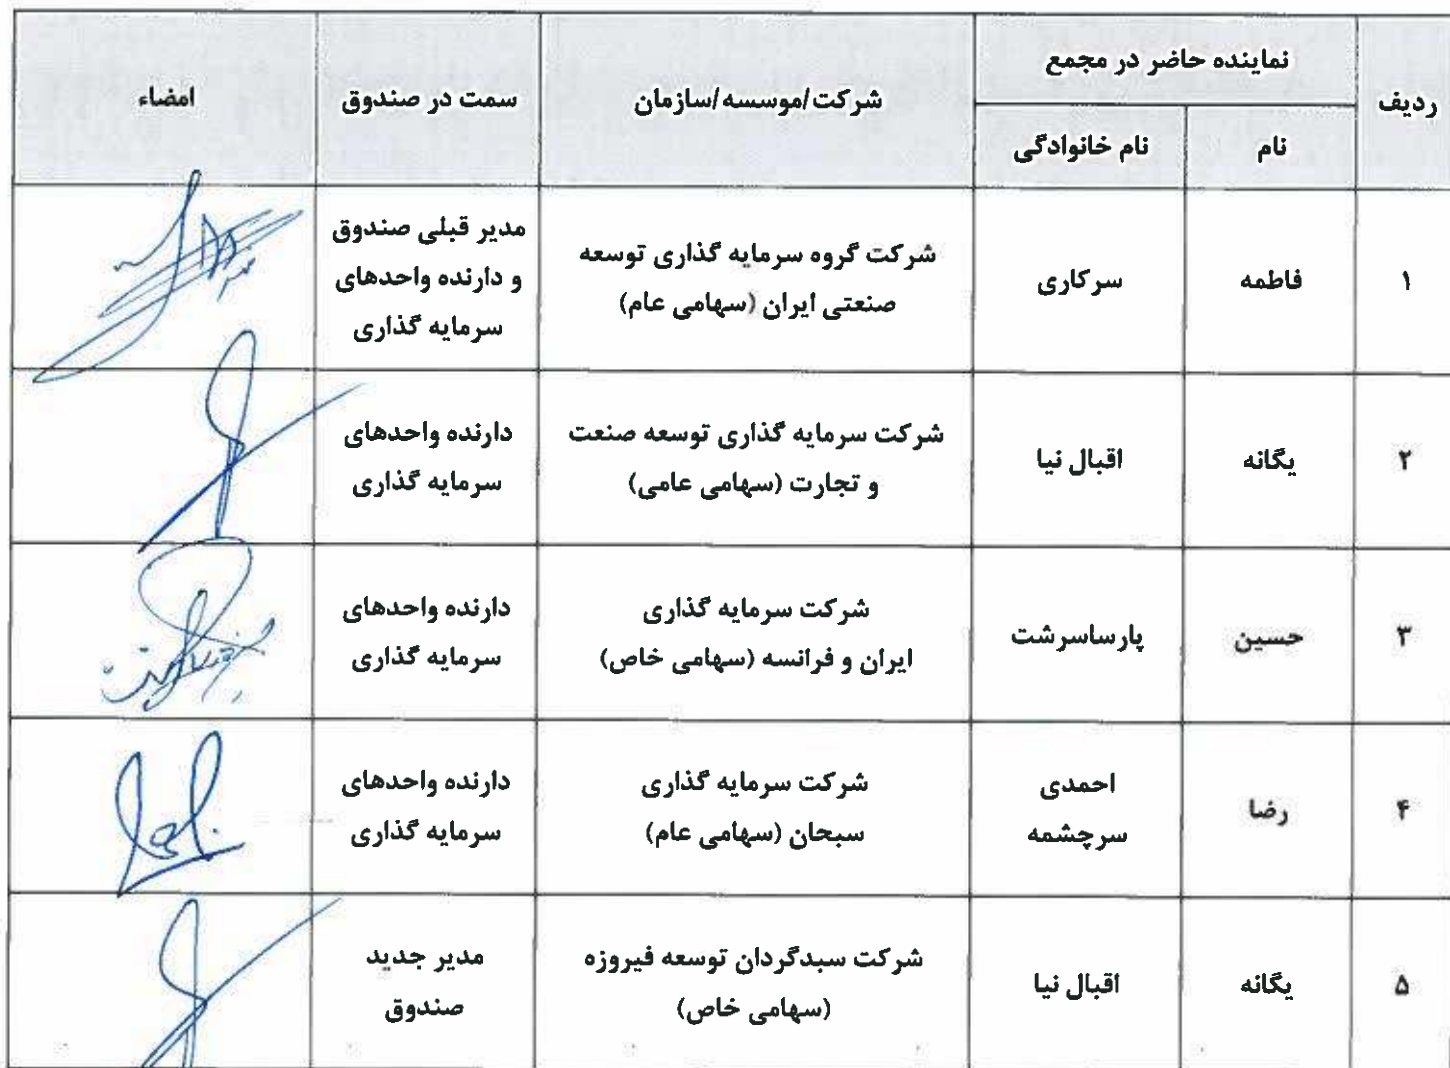 ردیف
نماینده حاضر در مجمع
نام
نام خانوادگی
شرکت/موسسه/سازمان
سمت در صندوق
امضاء
۱
فاطمه
سرکاری
شرکت گروه سرمایه گذاری توسعه
صنعتی ایران (سهامی عام)
مدیر قبلی صندوق
و دارنده واحدهای
سرمایه گذاری
۲
یگانه
اقبال نیا
شرکت سرمایه گذاری توسعه صنعت
و تجارت (سهامی عامی)
دارنده واحدهای
سرمایه گذاری
۳
حسین
پارساسرشت
شرکت سرمایه گذاری
ایران و فرانسه (سهامی خاص)
دارنده واحدهای
سرمایه گذاری
۴
رضا
احمدی
سرچشمه
شرکت سرمایه گذاری
سبحان (سهامی عام)
دارنده واحدهای
سرمایه گذاری
۵
یگانه
اقبال نیا
شرکت سبدگردان توسعه فیروزه
(سهامی خاص)
مدیر جدید
صندوق